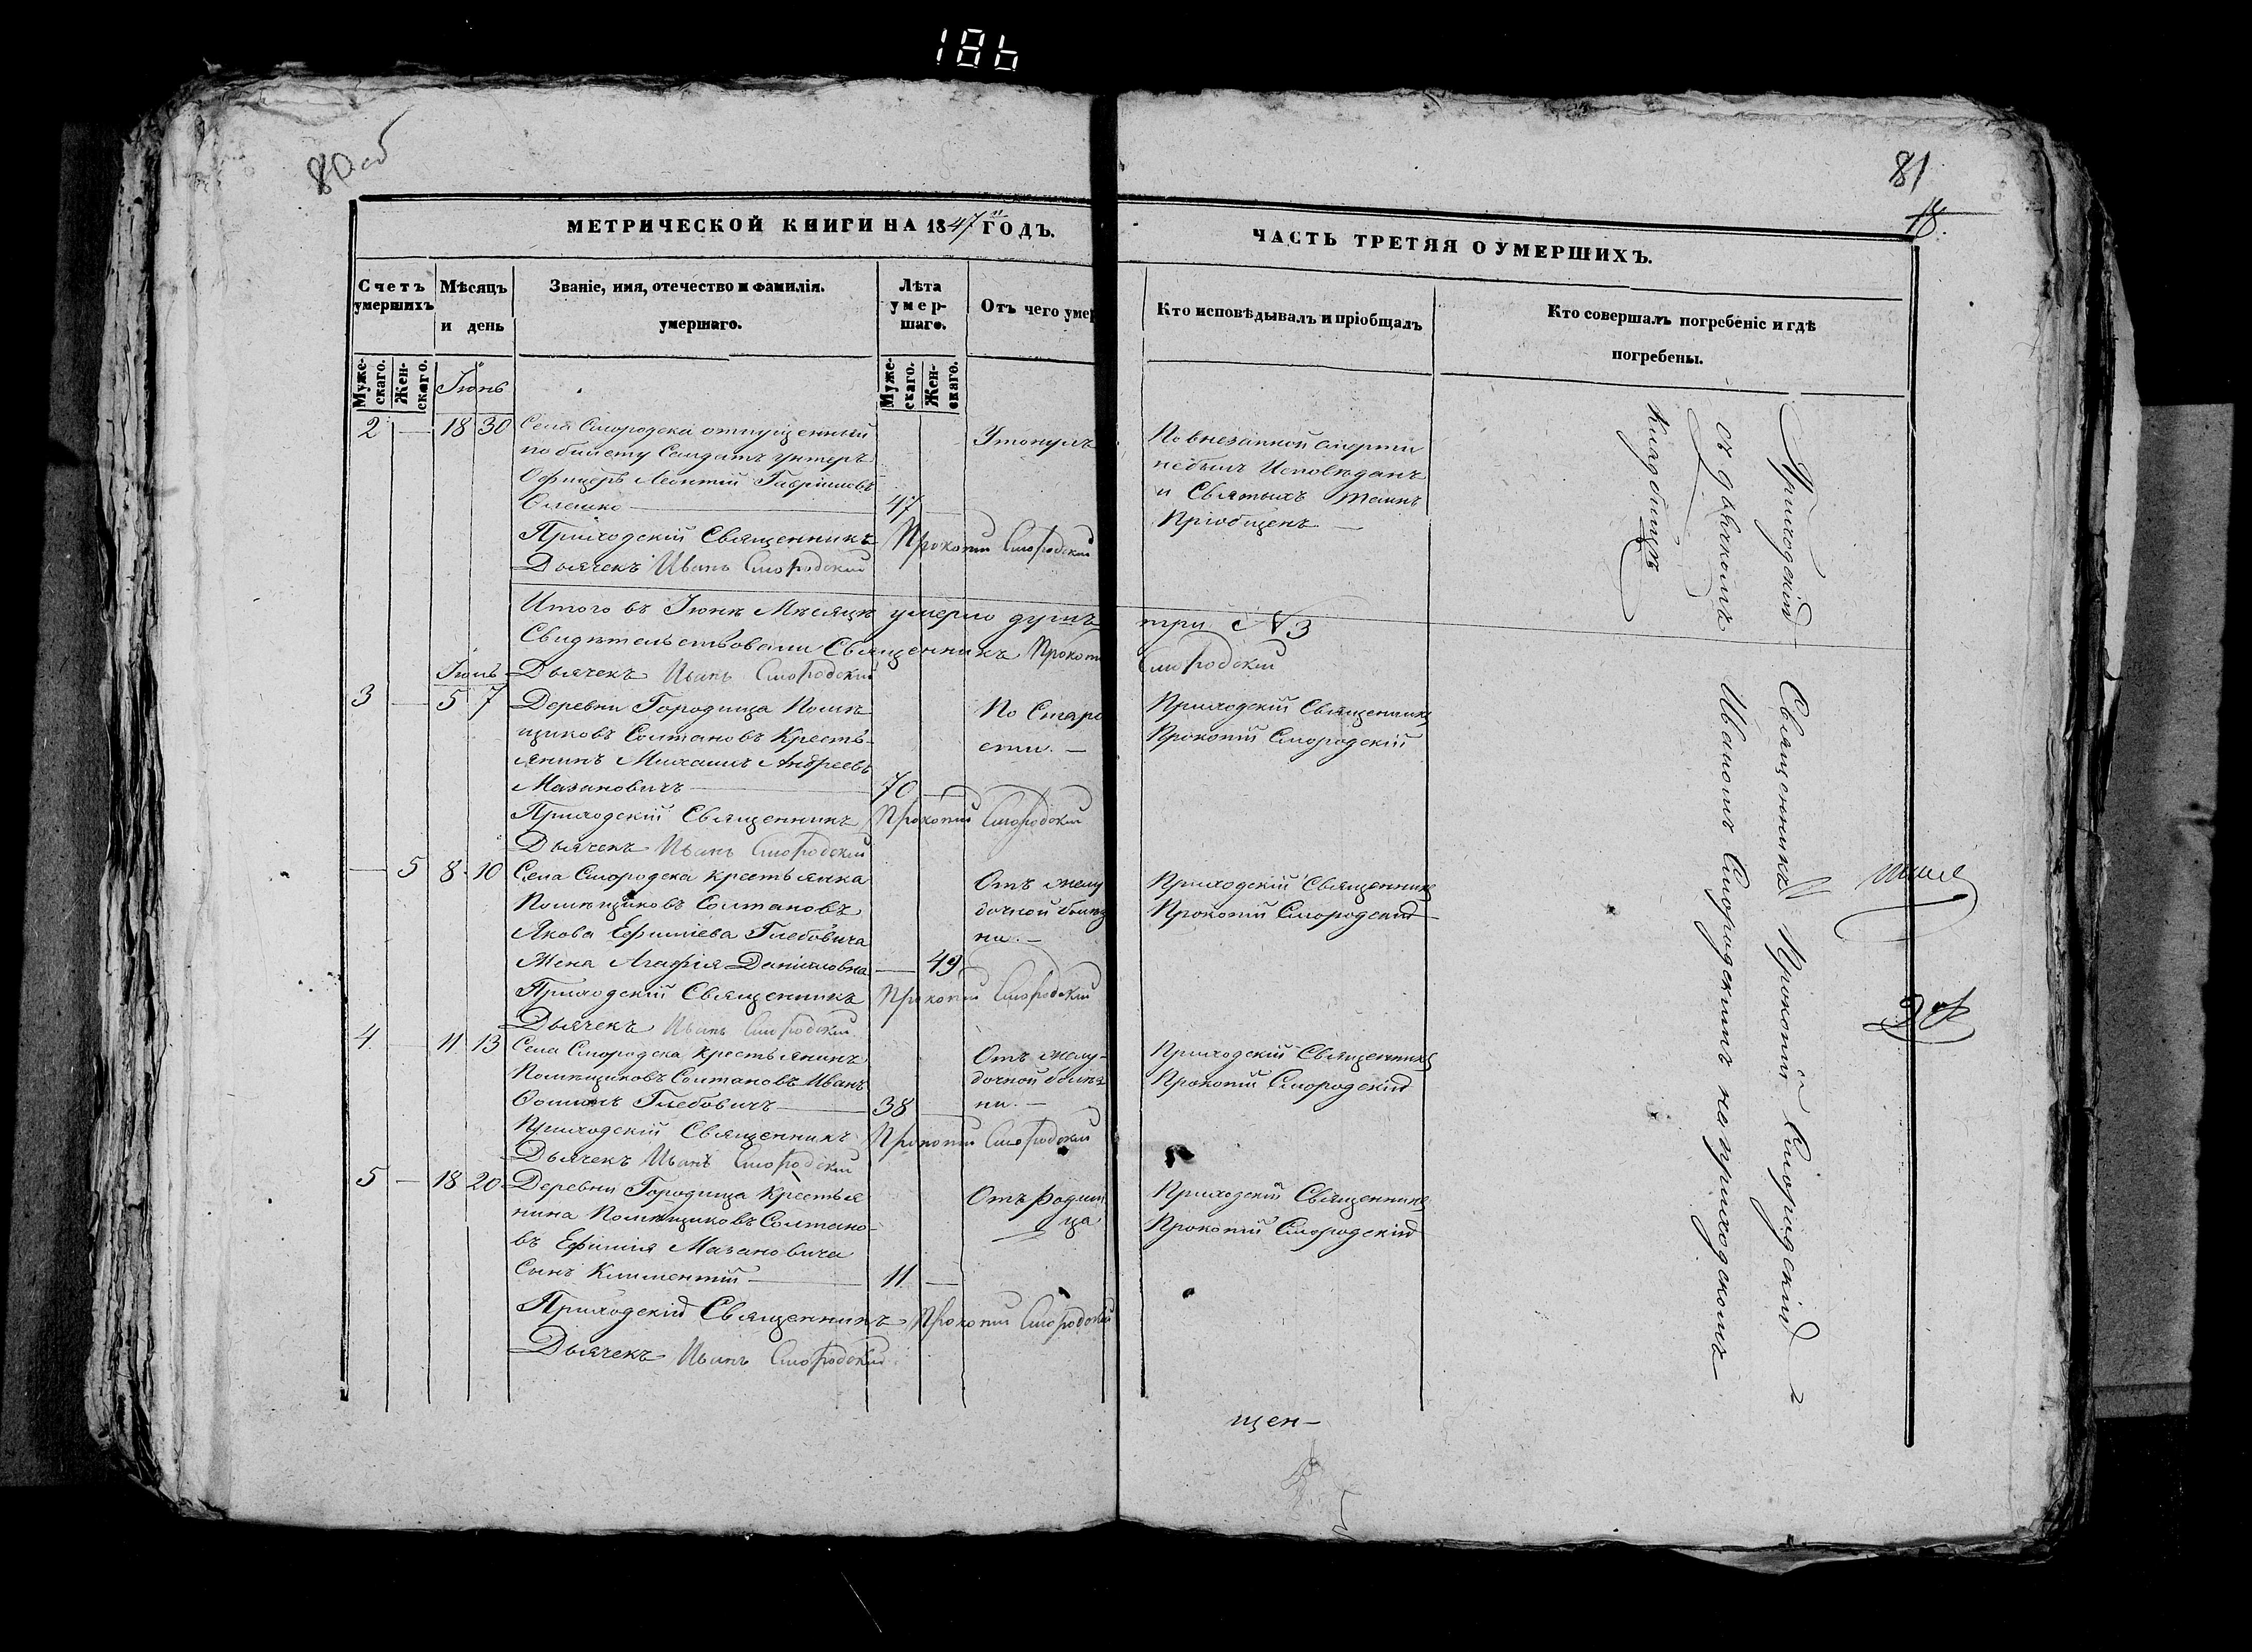 186
80 об
81
18.
МЕТРИЧЕСКОЙ КНИГИ НА 1847 ГОДЪ.
ЧАСТЬ ТРЕТЯЯ О УМЕРШИХЪ.
Счетъ умершихъ
Мѣсяцъ и день
Званіе, имя, отечество и фамилія.
умершаго.
Лѣта умер-шаго.
Отъ чего умер
Кто исповѣдывалъ и пріобщалъ
Кто совершалъ погребеніе и гдѣ
погребены.
Муже-скаго. Жен-скаго.
Муже-скаго. Жен-скаго.
Іюнь
2 — 18 30 Села Смородска отпущенный Утонулъ По внезапной смерти
по билету Солдатъ унтеръ небылъ Исповѣданъ
Офицеръ Леонтій Гавріиловъ и Святыхъ Таинъ
47 — Пріобщенъ —
Приходскій Священникъ Прокопій Смородскій
Дьячекъ Иванъ Смородскій
Итого въ Іюнѣ Мѣсяцѣ умерло душъ три N 3
Свидѣтельствовали Священникъ Прокопій Смородскій
Іюль Дьячекъ Иванъ Смородскій
3 — 5 7 Деревни Городища Помѣ- По Старо Приходскій Священникъ
щиковъ Солтановъ Кресть- сти. — Прокопій Смородскій
янинъ Михаилъ Андреевъ
Мазановичъ — 70 —
Приходскій Священникъ Прокопій Смородскій
Дьячекъ Иванъ Смородскій
— 5 8 10 Села Смородска крестьянка Отъ желу Приходскій Священникъ
Помѣщиковъ Солтановъ дочной болѣз Прокопій Смородскій
Якова Ефиміева Глебовича ни. —
Жена Агафія Даніиловна — 49
Приходскій Священникъ Прокопій Смородскій
Дьячекъ Иванъ Смородскій
4 — 11 13 Села Смородска крестьянинъ Отъ желу- Приходскій Священникъ
Помѣщиковъ Солтановъ Иванъ дочной болѣз Прокопій Смородскій
Глебовичъ — 38 — ни. —
Приходскій Священникъ Прокопій Смородскій
Дьячекъ Иванъ Смородскій
5 — 18 20 Деревни Городища Крестья Отъ родим Приходскій Священникъ
нина Помѣщиковъ Солтано- ца Прокопій Смородскій
въ Ефимія Мазановича
Сынъ Климентій — 11 —
Приходскій Священникъ Прокопій Смородскій
Дьячекъ Иванъ Смородскій
Приходскій Священникъ Прокопій Смородскій
съ дьячкомъ Иваномъ Смородскимъ на приходскомъ
кладбищѣ
щен-